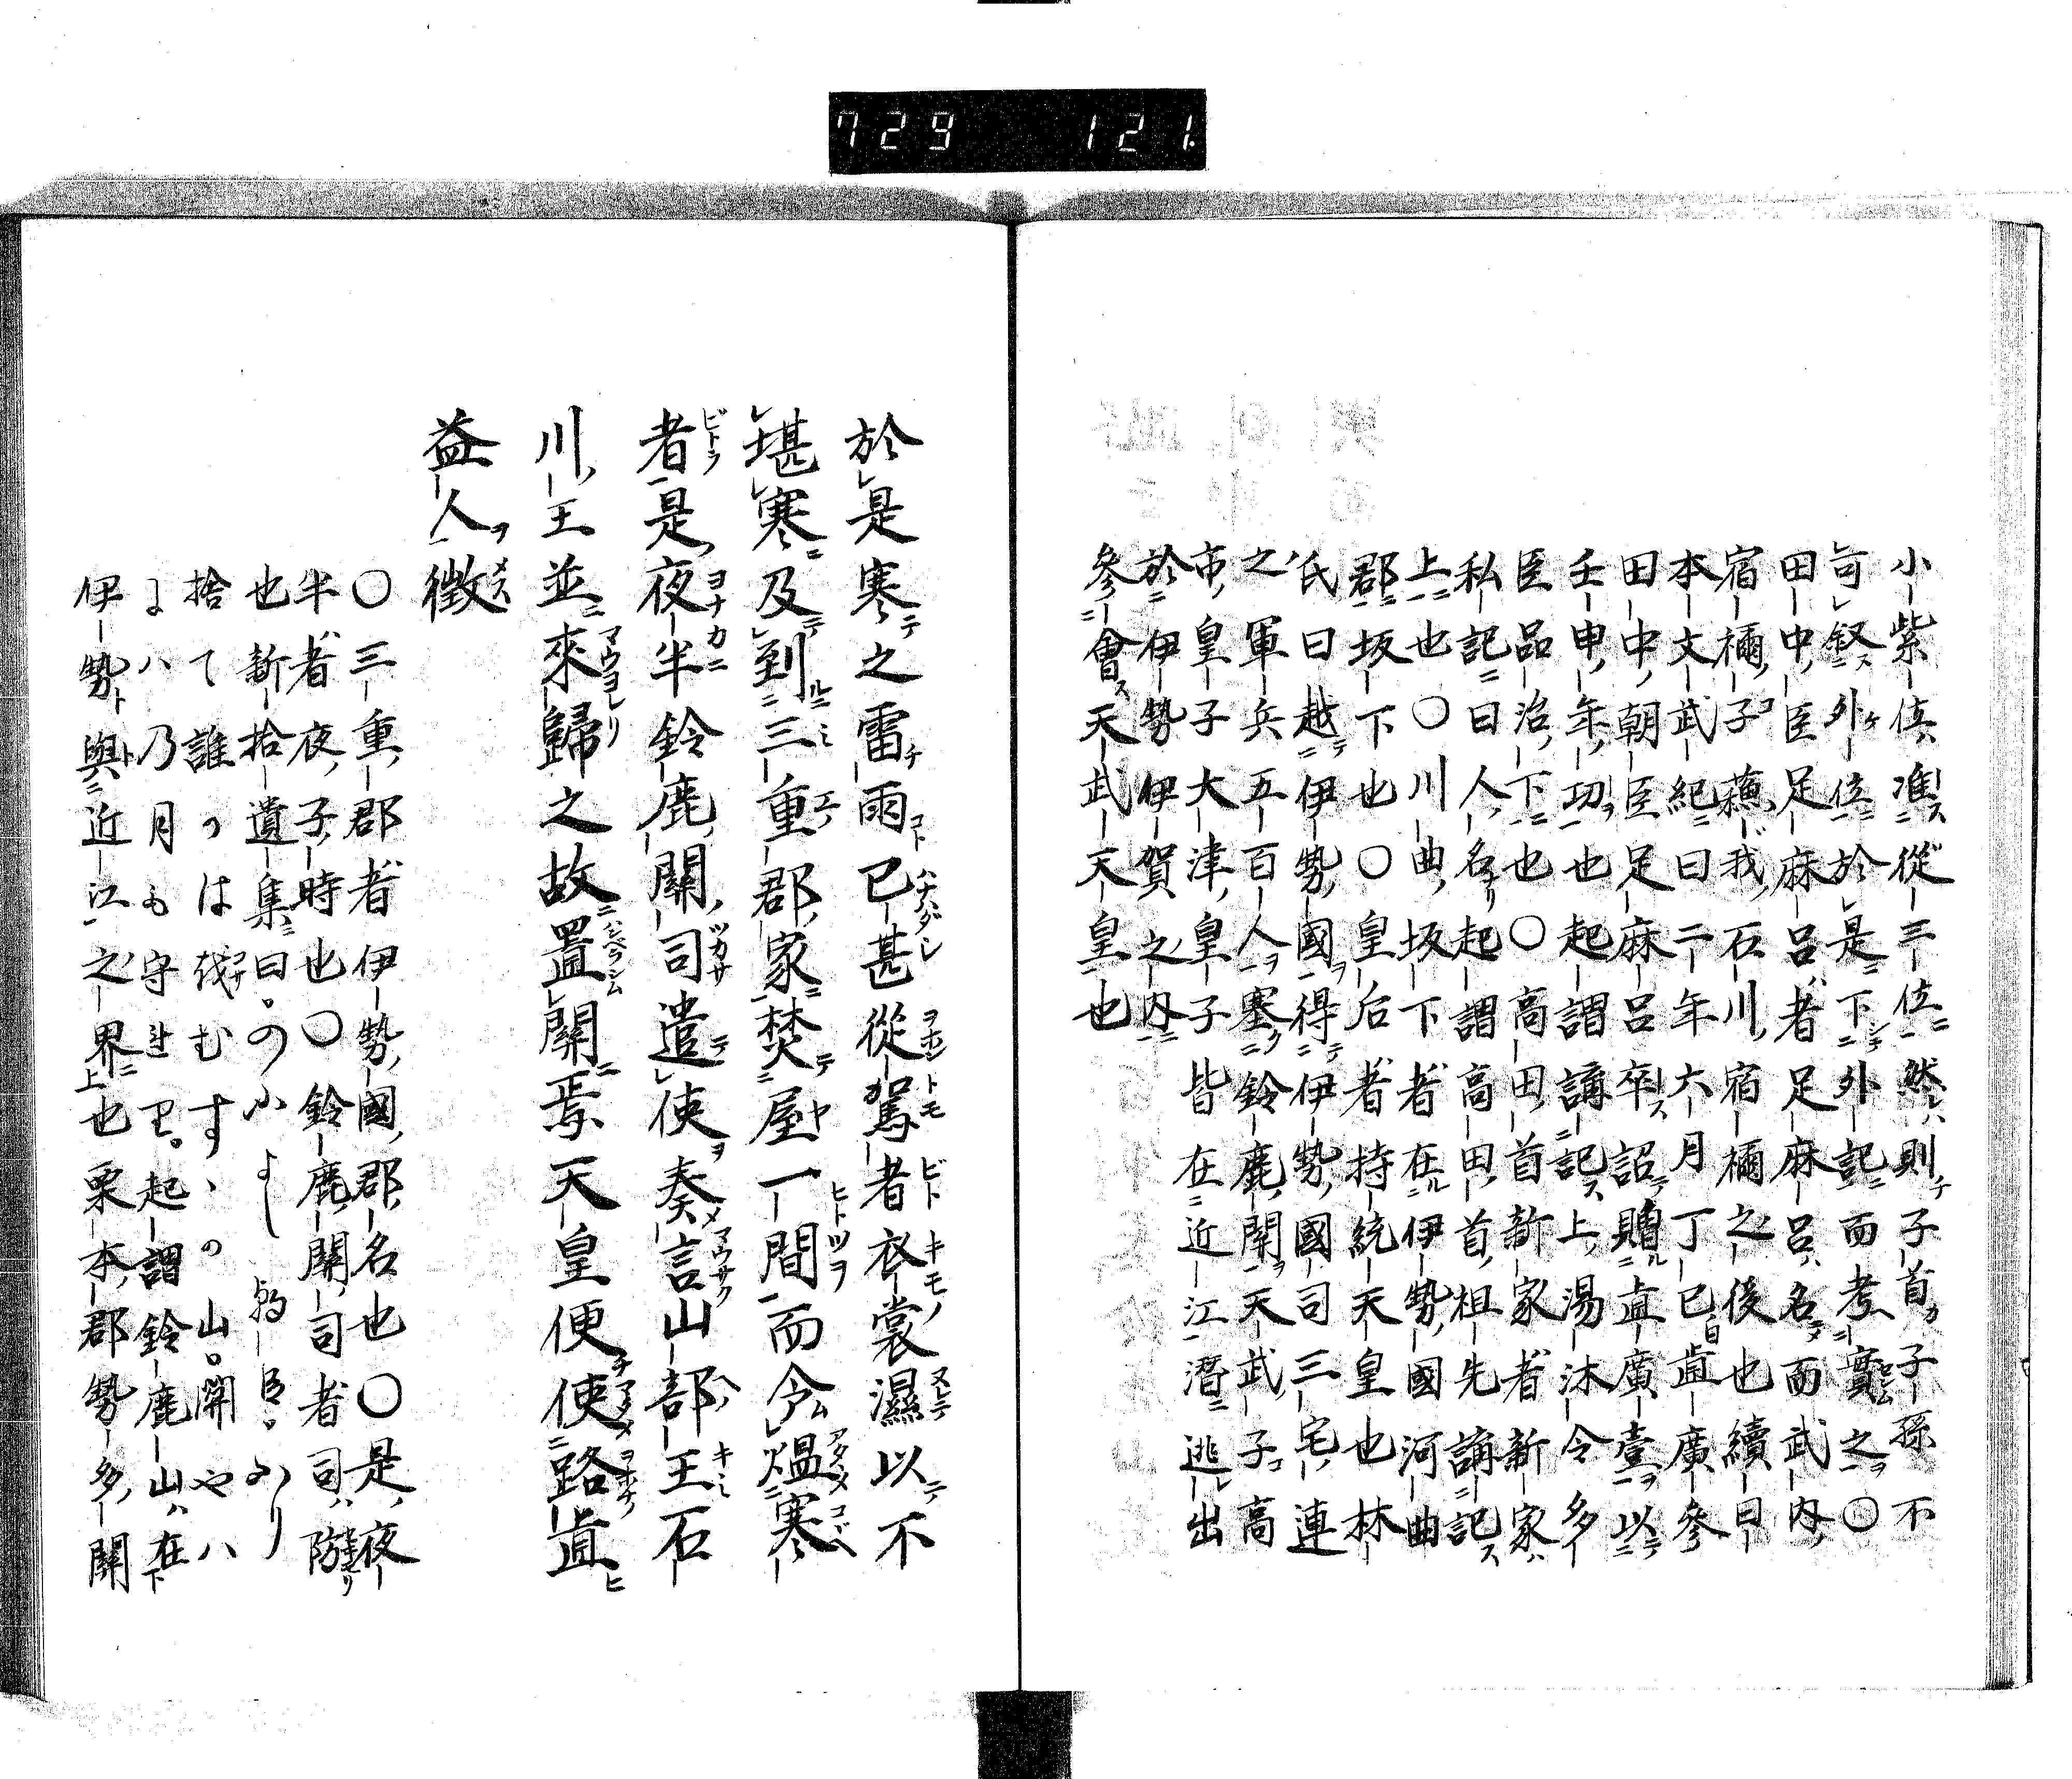 729 121
小紫位准從三位然則子首子孫不
可叙外位於是下外記而考實之○
田中臣足麻呂者足麻呂名而武内
宿禰子蘓我石川宿禰之後也續日
本文武紀曰二年六月丁巳直廣參
田中朝臣足麻呂卒詔贈直廣壹以
壬申年功也起謂講記上湯沐令多
臣品治下也○高田首新家者新家
私記曰人名起謂高田首祖先講記
上也○川曲坂下者在伊勢國河曲
郡坂下也○皇后者持統天皇也林
氏曰越伊勢國得伊勢國司三宅連
之軍兵五百人塞鈴鹿關天武子高
市皇子大津皇子皆在近江潛逃出
於伊勢伊賀之内
參會天武天皇也
於是寒之雷雨已甚從駕者衣裳濕以不
堪寒及到三重郡家焚屋一間而令熅寒
者是夜半鈴鹿關司遣使奏言山部王石
川王並來歸之故置關焉天皇便使路直
益人徵
○三重郡者伊勢國郡名也○是夜
半者夜子時也○鈴鹿關司者司
也新拾遺集曰
捨て誰
よハ乃月も守 起謂鈴鹿山在
伊勢與近江之界也栗本郡勢多關